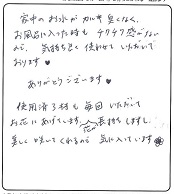 家中のお水がカルキ臭くなく、
お風呂に入った時もチクチク感がない
ので、気持ち良く使わせていただいて
おります♥
ありがとうございます♥
使用済み材も毎回いただいて
お花にあげています。花が長持ちしますし、
美しく咲いてくれるので気に入っています